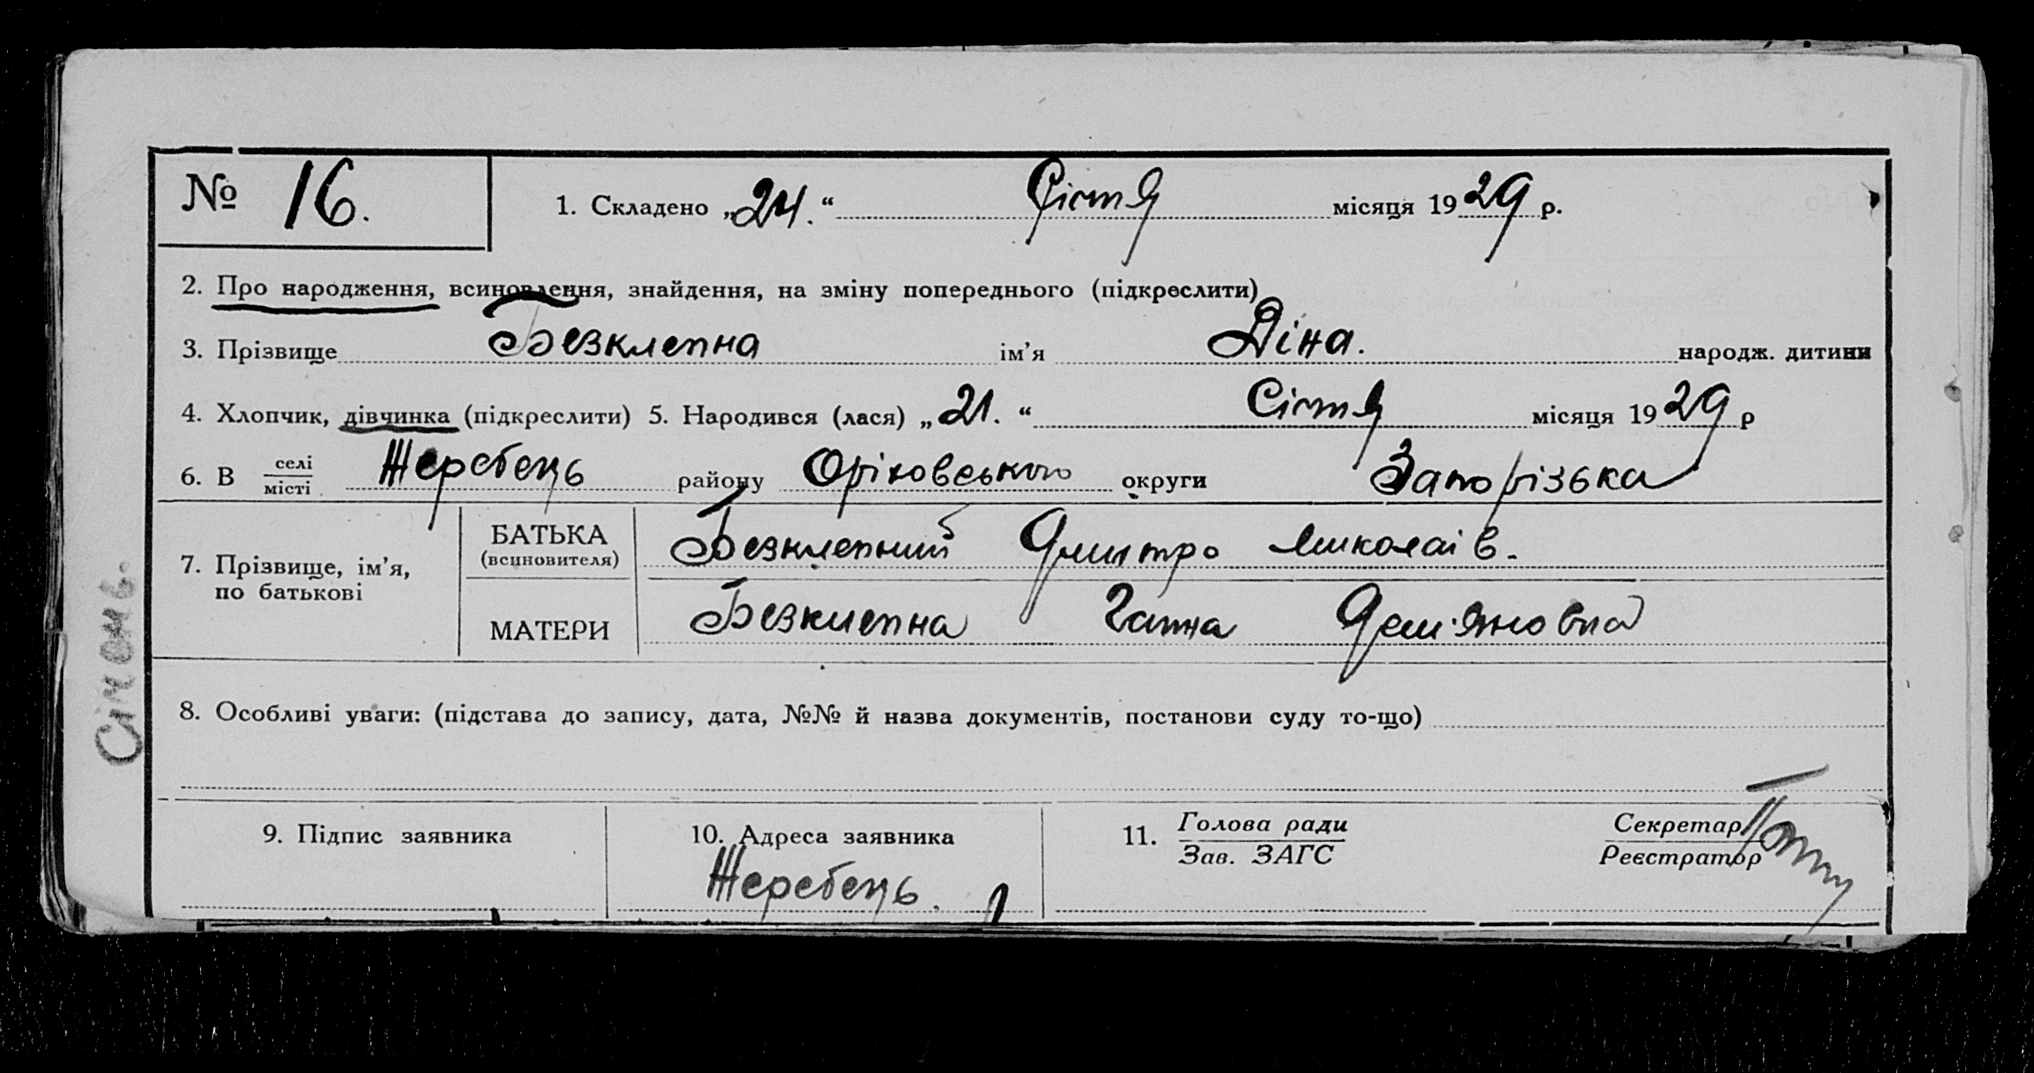 № 16.
1. Складено „24.“ Січня місяця 1929 р.
2. Про народження, всиновлення, знайдення, на зміну попереднього (підкреслити)
3. Прізвище Безклепна ім’я Діна. народж. дитини
4. Хлопчик, дівчинка (підкреслити) 5. Народився (лася) „21.“ Січня місяця 1929 р
6. В селі місті Жеребець району Оріховського округи Запорізька
7. Прізвище, ім’я, по батькові
БАТЬКА (всиновителя) Безклепний Дмитро Миколаів.
МАТЕРИ Безклепна Ганна Дем'яновна
8. Особливі уваги: (підстава до запису, дата, №№ й назва документів, постанови суду то-що)
9. Підпис заявника
10. Адреса заявника
Жеребець.
11. Голова ради
Зав. ЗАГС
Секретар
Реєстратор
Січень.